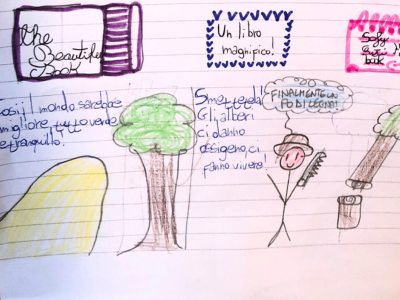 the
Beautiful
Book
Un libro
magnifico!
Sofy
book
così il mondo sarebbe
migliore tutto verde
e tranquillo.
Smettetela
Gli alberi
ci danno
ossigeno, ci
fanno vivere!
FINALMENTE UN
PO DI LEGNA!